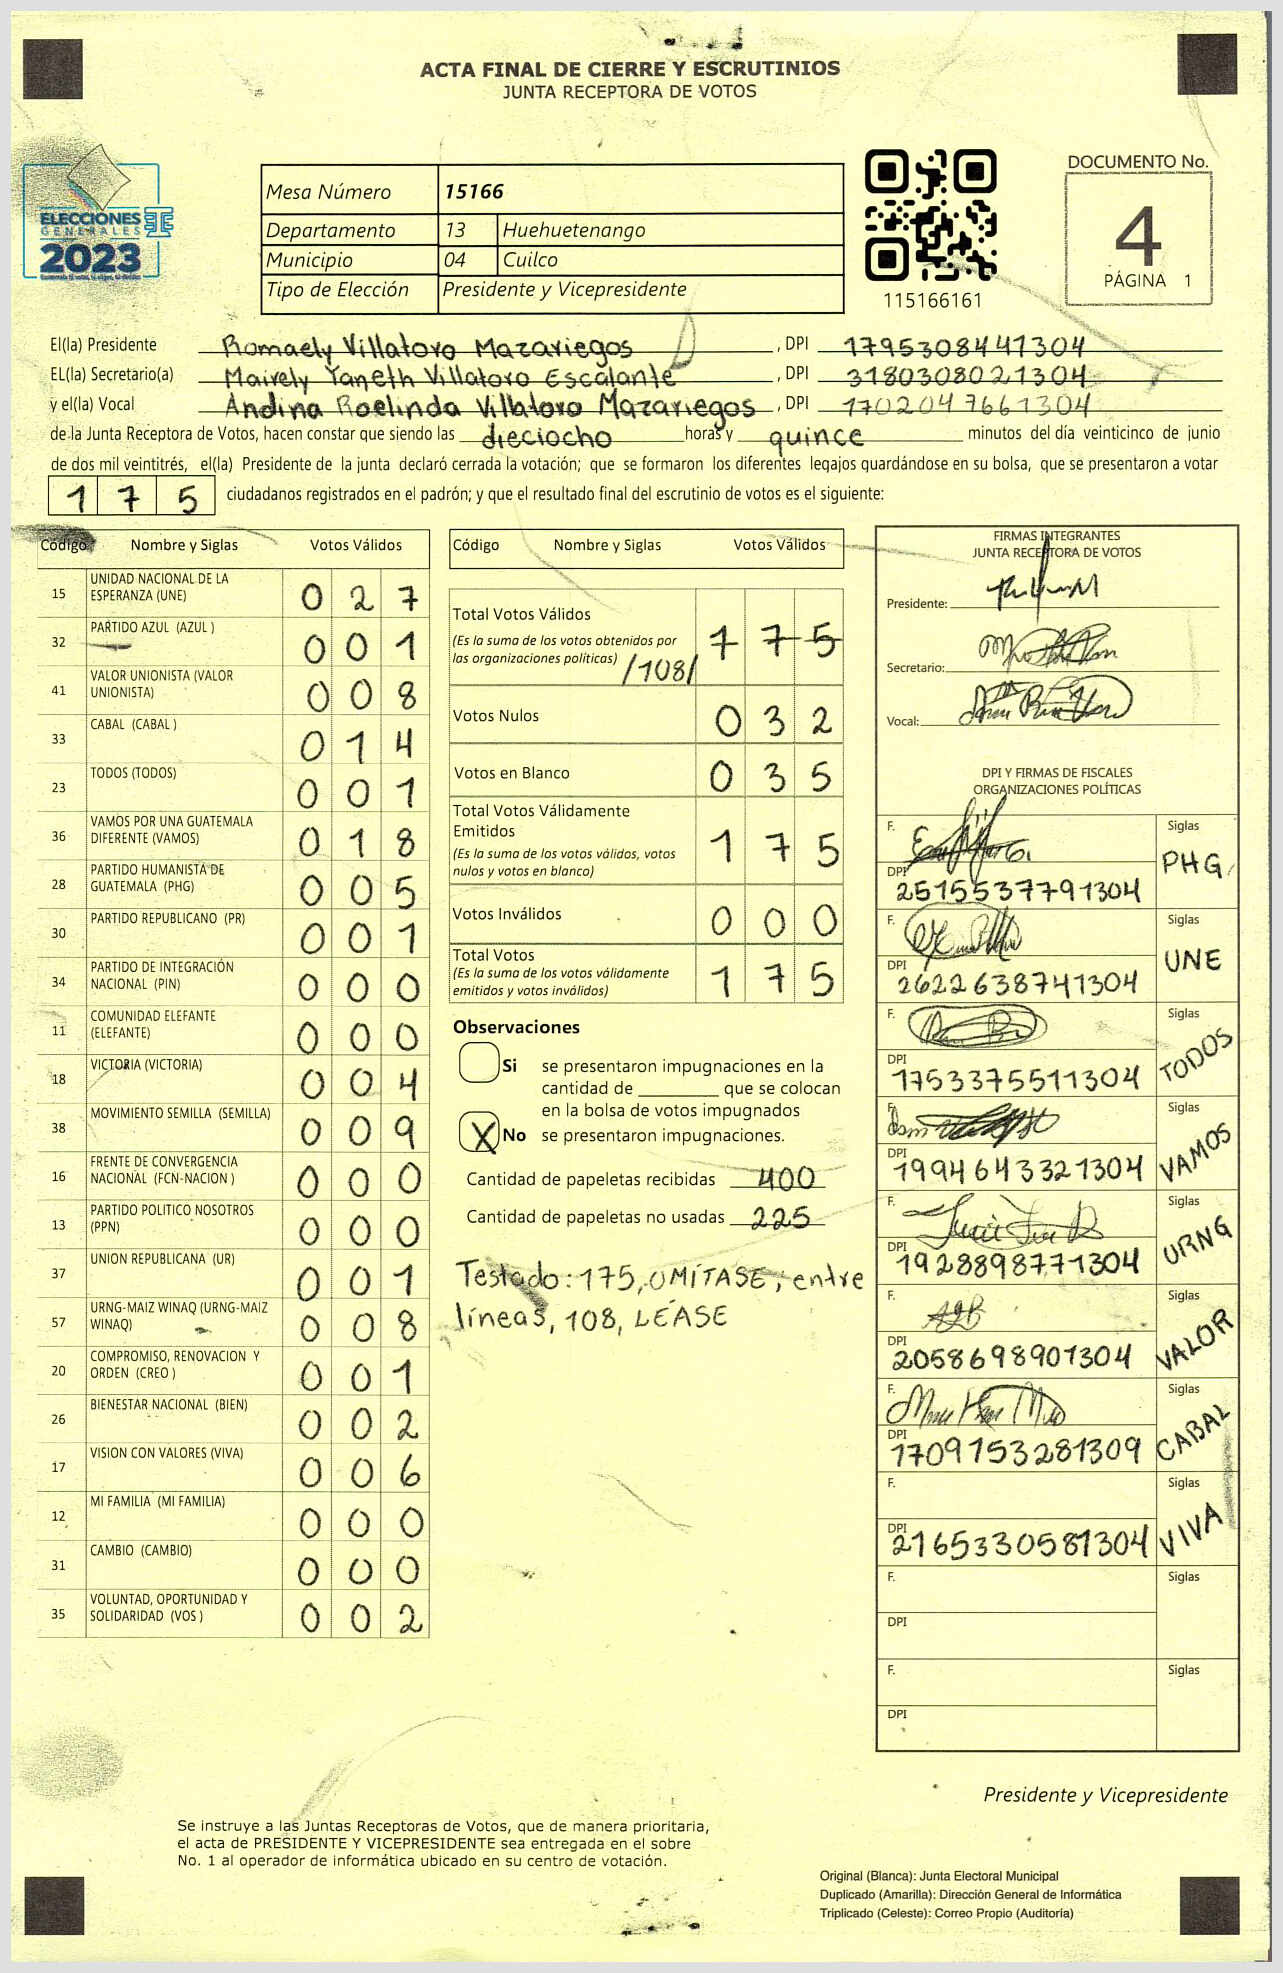 ACTA FINAL DE CIERRE Y ESCRUTINIOS
JUNTA RECEPTORA DE VOTOS
ELECCIONES
GENERALES
2023
Mesa Número 15166
Departamento 13 Huehuetenango
Municipio 04 Cuilco
Tipo de Elección Presidente y Vicepresidente
115166161
DOCUMENTO No.
4
PÁGINA 1
El(la) Presidente Romaely Villatoro Mazariegos, DPI 1795308441304
EL(la) Secretario(a) Mairely Yaneth Villatoro Escalante, DPI 3180308021304
y el(la) Vocal Andina Roelinda Villatoro Mazariegos, DPI 1702047661304
de la Junta Receptora de Votos, hacen constar que siendo las dieciocho horas y quince minutos del día veinticinco de junio
de dos mil veintitrés, el(la) Presidente de la junta declaró cerrada la votación; que se formaron los diferentes legajos guardándose en su bolsa, que se presentaron a votar
175 ciudadanos registrados en el padrón; y que el resultado final del escrutinio de votos es el siguiente:
Código Nombre y Siglas Votos Válidos
15 UNIDAD NACIONAL DE LA ESPERANZA (UNE) 027
32 PARTIDO AZUL (AZUL ) 001
41 VALOR UNIONISTA (VALOR UNIONISTA) 008
33 CABAL (CABAL ) 014
23 TODOS (TODOS) 001
36 VAMOS POR UNA GUATEMALA DIFERENTE (VAMOS) 018
28 PARTIDO HUMANISTA DE GUATEMALA (PHG) 005
30 PARTIDO REPUBLICANO (PR) 001
34 PARTIDO DE INTEGRACIÓN NACIONAL (PIN) 000
11 COMUNIDAD ELEFANTE (ELEFANTE) 000
18 VICTORIA (VICTORIA) 004
38 MOVIMIENTO SEMILLA (SEMILLA) 009
16 FRENTE DE CONVERGENCIA NACIONAL (FCN-NACION ) 000
13 PARTIDO POLITICO NOSOTROS (PPN) 000
37 UNION REPUBLICANA (UR) 001
57 URNG-MAIZ WINAQ (URNG-MAIZ WINAQ) 008
20 COMPROMISO, RENOVACION Y ORDEN (CREO ) 001
26 BIENESTAR NACIONAL (BIEN) 002
17 VISION CON VALORES (VIVA) 006
12 MI FAMILIA (MI FAMILIA) 000
31 CAMBIO (CAMBIO) 000
35 VOLUNTAD, OPORTUNIDAD Y SOLIDARIDAD (VOS ) 002
Código Nombre y Siglas Votos Válidos
Total Votos Válidos
(Es la suma de los votos obtenidos por
las organizaciones políticas) /108/ 175
Votos Nulos 032
Votos en Blanco 035
Total Votos Válidamente
Emitidos
(Es la suma de los votos válidos, votos
nulos y votos en blanco) 175
Votos Inválidos 000
Total Votos
(Es la suma de los votos válidamente
emitidos y votos inválidos) 175
Observaciones
Si se presentaron impugnaciones en la
cantidad de ________ que se colocan
en la bolsa de votos impugnados
X No se presentaron impugnaciones.
Cantidad de papeletas recibidas 400
Cantidad de papeletas no usadas 225
Testado: 175, OMÍTASE; entre
líneas, 108, LÉASE
FIRMAS INTEGRANTES
JUNTA RECEPTORA DE VOTOS
Presidente:
Secretario:
Vocal:
DPI Y FIRMAS DE FISCALES
ORGANIZACIONES POLÍTICAS
F. Siglas PHG
DPI 2515537791304
F. Siglas UNE
DPI 2622638741304
F. Siglas TODOS
DPI 1753375511304
F. Siglas VAMOS
DPI 1994643321304
F. Siglas URNG
DPI 1928898771304
F. Siglas VALOR
DPI 2058698901304
F. Siglas CABAL
DPI 1709153281309
F. Siglas VIVA
DPI 2165330581304
F. Siglas
DPI
F. Siglas
DPI
Presidente y Vicepresidente
Se instruye a las Juntas Receptoras de Votos, que de manera prioritaria,
el acta de PRESIDENTE Y VICEPRESIDENTE sea entregada en el sobre
No. 1 al operador de informática ubicado en su centro de votación.
Original (Blanca): Junta Electoral Municipal
Duplicado (Amarilla): Dirección General de Informática
Triplicado (Celeste): Correo Propio (Auditoría)